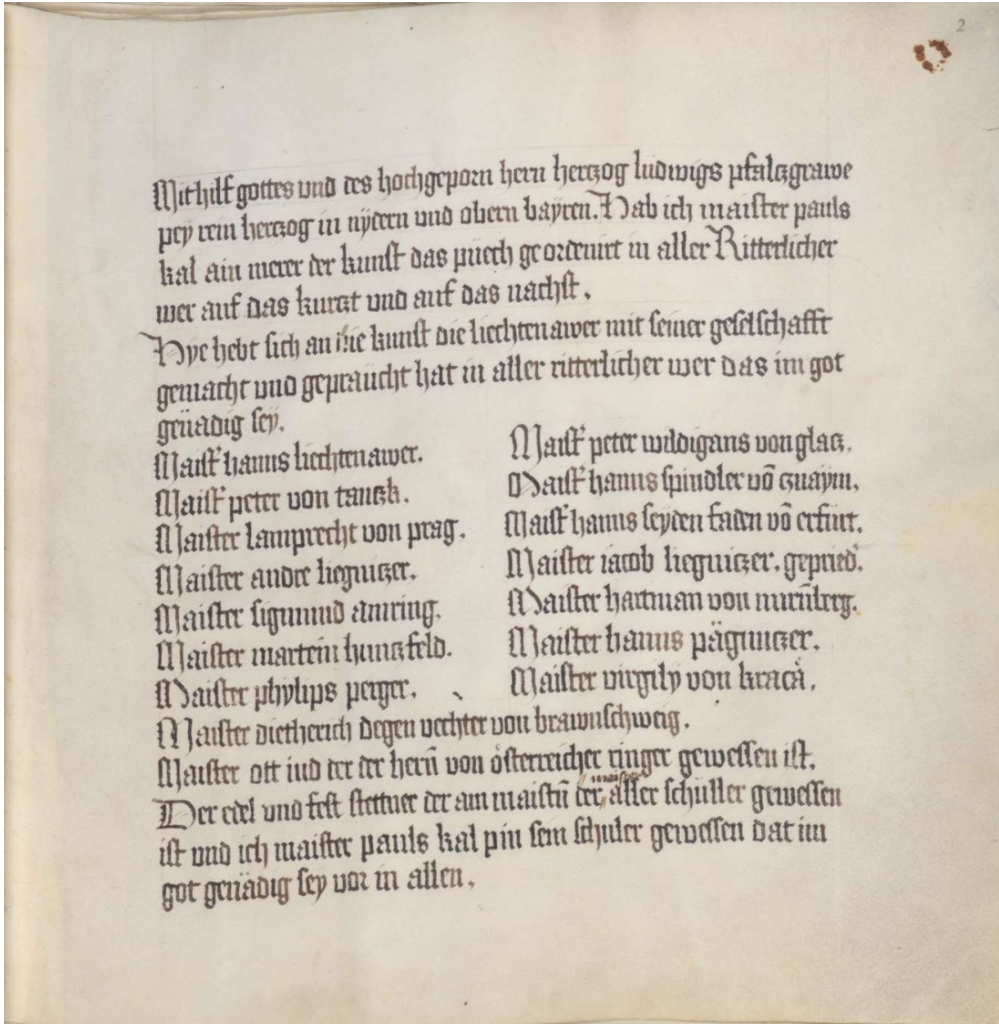 2
Mit hilf gottes vnd des hochgeporn hern hertzog ludwigs pfaltzgrawe
pey rein hertzog in nydern vnd obern bayren. Hab ich maister pauls
kal ain merer der kunst das puech geordenirt in aller Ritterlicher
wer auf das kurtzt vnd auf das nachst.
Hye hebt sich an die kunst die liechtenawer mit seiner geselschafft
gemacht vnd gepraucht hat in aller ritterlicher wer das im got
genädig sey.
Maist hanns liechtenawer.
Maist peter von tanczk.
Maister lamprecht von prag.
Maister andre liegniczer.
Maister sigmund amring.
Maister martein hunczfeld.
Maister phylips perger.
Maist peter wildigans von glacz.
Maist hanns spindler vō cznaym.
Maist hanns seyden faden vō erfürt.
Maister iacob liegniczer. gepried.
Maister hartman von nurñberg.
Maister hanns pägnüczer.
Maister virgily von kracå.
Maister dietherich degen vechter von brawnschweig.
Maister ott iud der der herñ von österreicher ringer gewessen ist.
Der edel vnd fest stettner der am maistñ der maister aller schuller gewessen
ist vnd ich maister pauls kal pin sein schuler gewessen dat im
got genädig sey vor in allen.